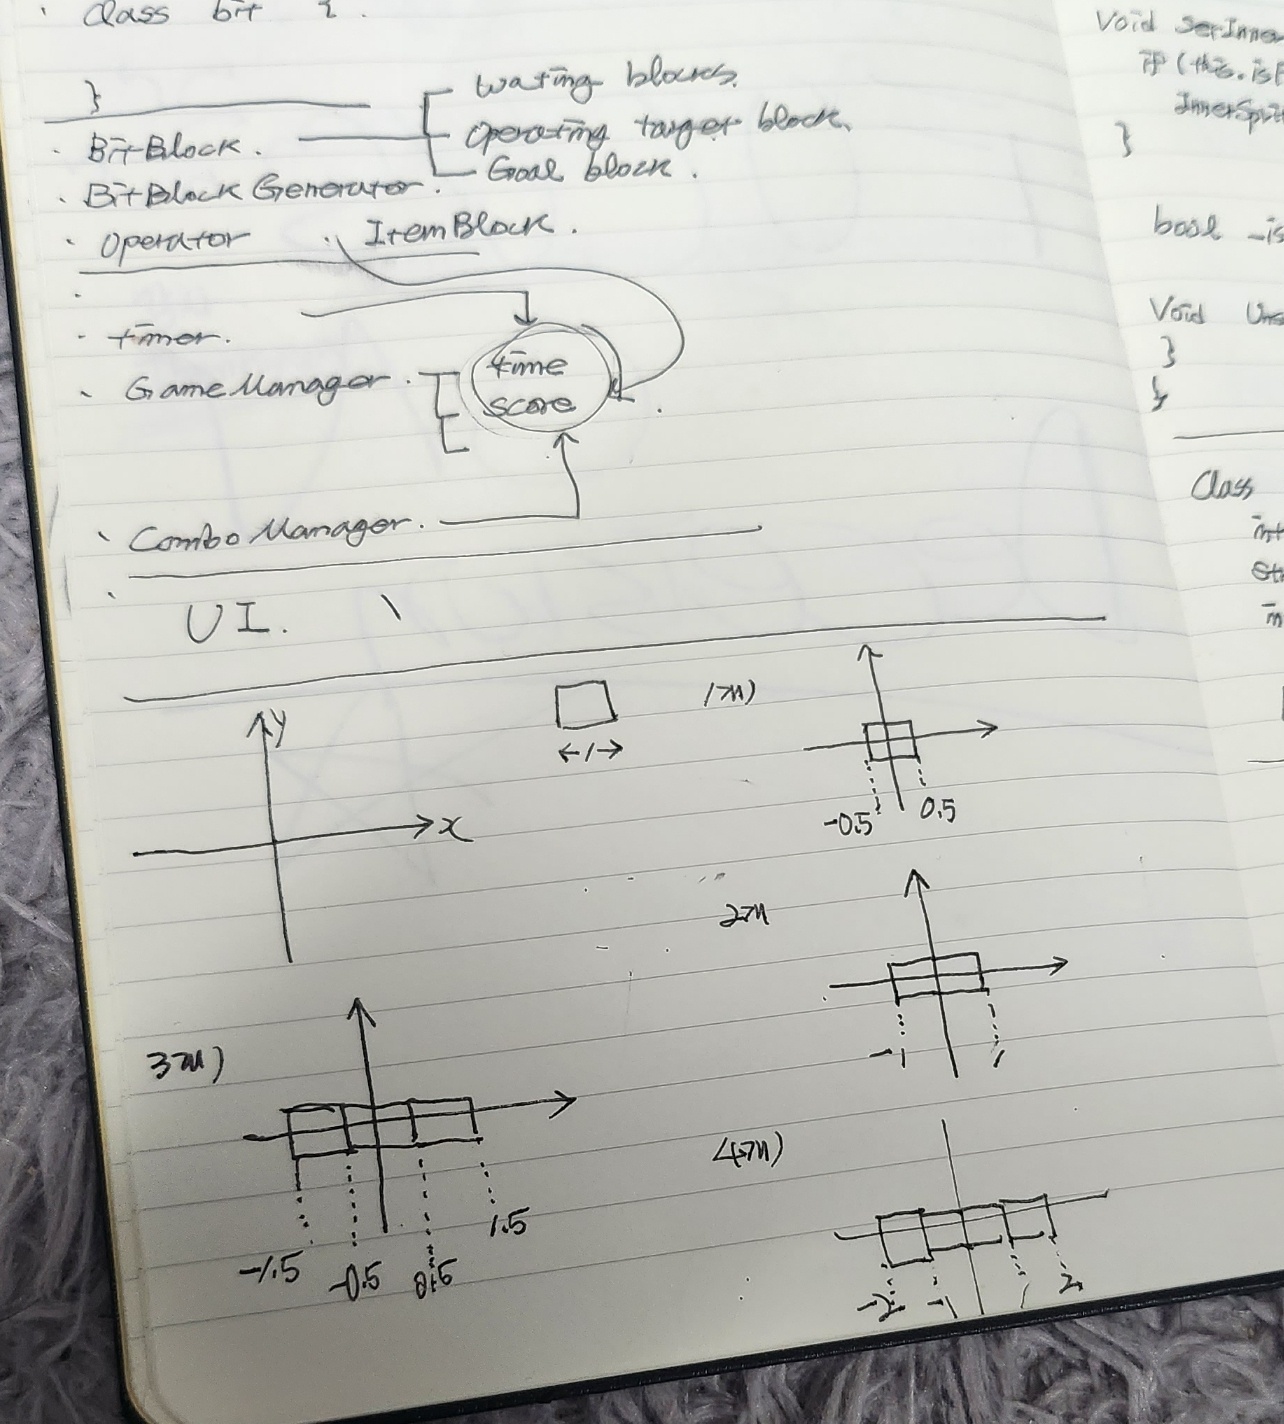 Class bit {
}
BitBlock.
Wating blocks.
Operating target block.
Goal block.
BitBlock Generator.
Operator
ItemBlock.
timer.
Game Manager.
time
score
Combo Manager.
UI.
y
x
←1→
1개)
-0.5
0.5
2개
-1
1
3개)
-1.5
-0.5
0.5
1.5
4개)
-2
-1
1
2
Void
if (this.is
}
bool _is
Void
}
}
Class
int